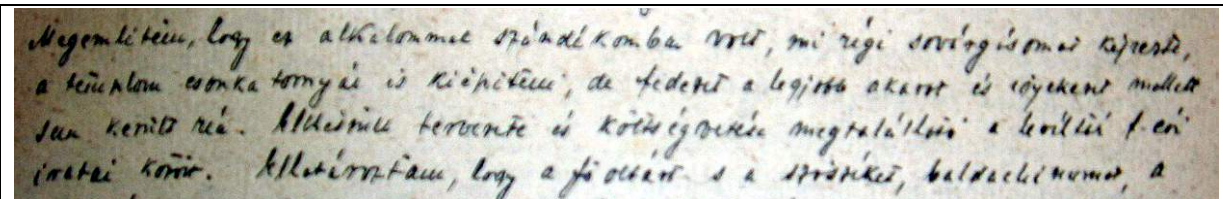 Megemlítem, hogy ez alkalommal szándékomba volt, mi régi sóvárgásomat képezte,
a templom csonka tornyát is kiépíteni, de fedezet a legjobb akarat és igyekezet mellett
sem került reá. Elkészült tervezete és költségvetése megtalálható a levéltár f. évi
iratai között. Elhatároztam, hogy a fő oltárt s a szószéket, baldachinumot, a